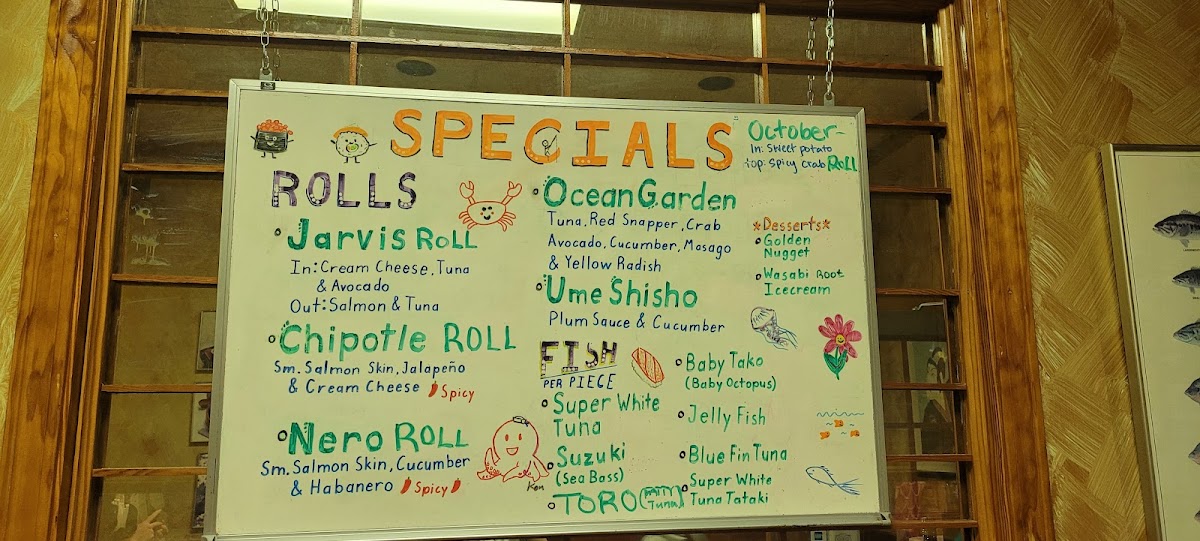 SPECIALS
October-
In: Sweet potato
top: Spicy Crab Roll
ROLLS
Jarvis ROLL
In: Cream Cheese, Tuna
& Avocado
Out: Salmon & Tuna
Chipotle ROLL
Sm. Salmon Skin, Jalapeño
& Cream Cheese Spicy
Nero ROLL
Sm. Salmon Skin, Cucumber
& Habanero Spicy
Ocean Garden
Tuna, Red Snapper, Crab
Avocado, Cucumber, Mosago
& Yellow Radish
Ume Shisho
Plum Sauce & Cucumber
*Desserts*
Golden
Nugget
Wasabi Root
Icecream
FISH
PER PIECE
Super White
Tuna
Suzuki
(Sea Bass)
TORO (Fatty
Tuna)
Baby Tako
(Baby Octopus)
Jelly Fish
Blue Fin Tuna
Super White
Tuna Tataki